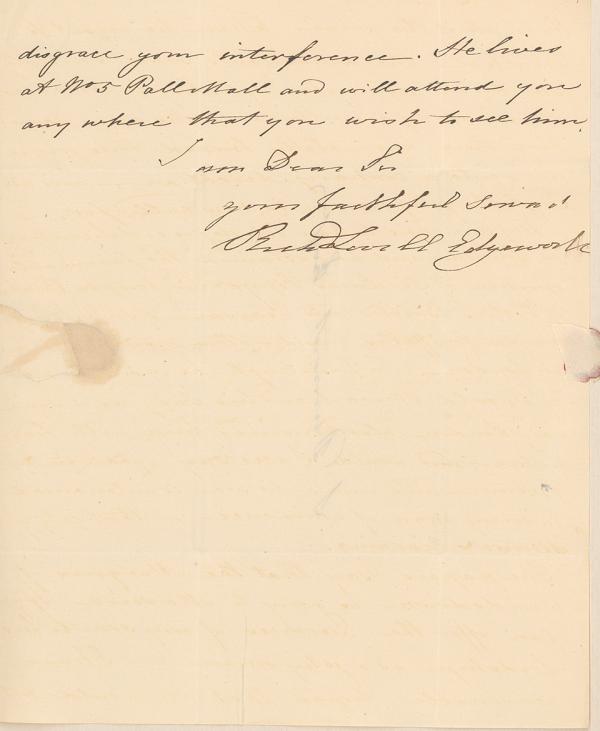 disgrace your interference. He lives
at No 5 Pall Mall and will attend you
any where that you wish to see him.
I am Dear Sir
your faithful Servant
Richd Lovell Edgeworth